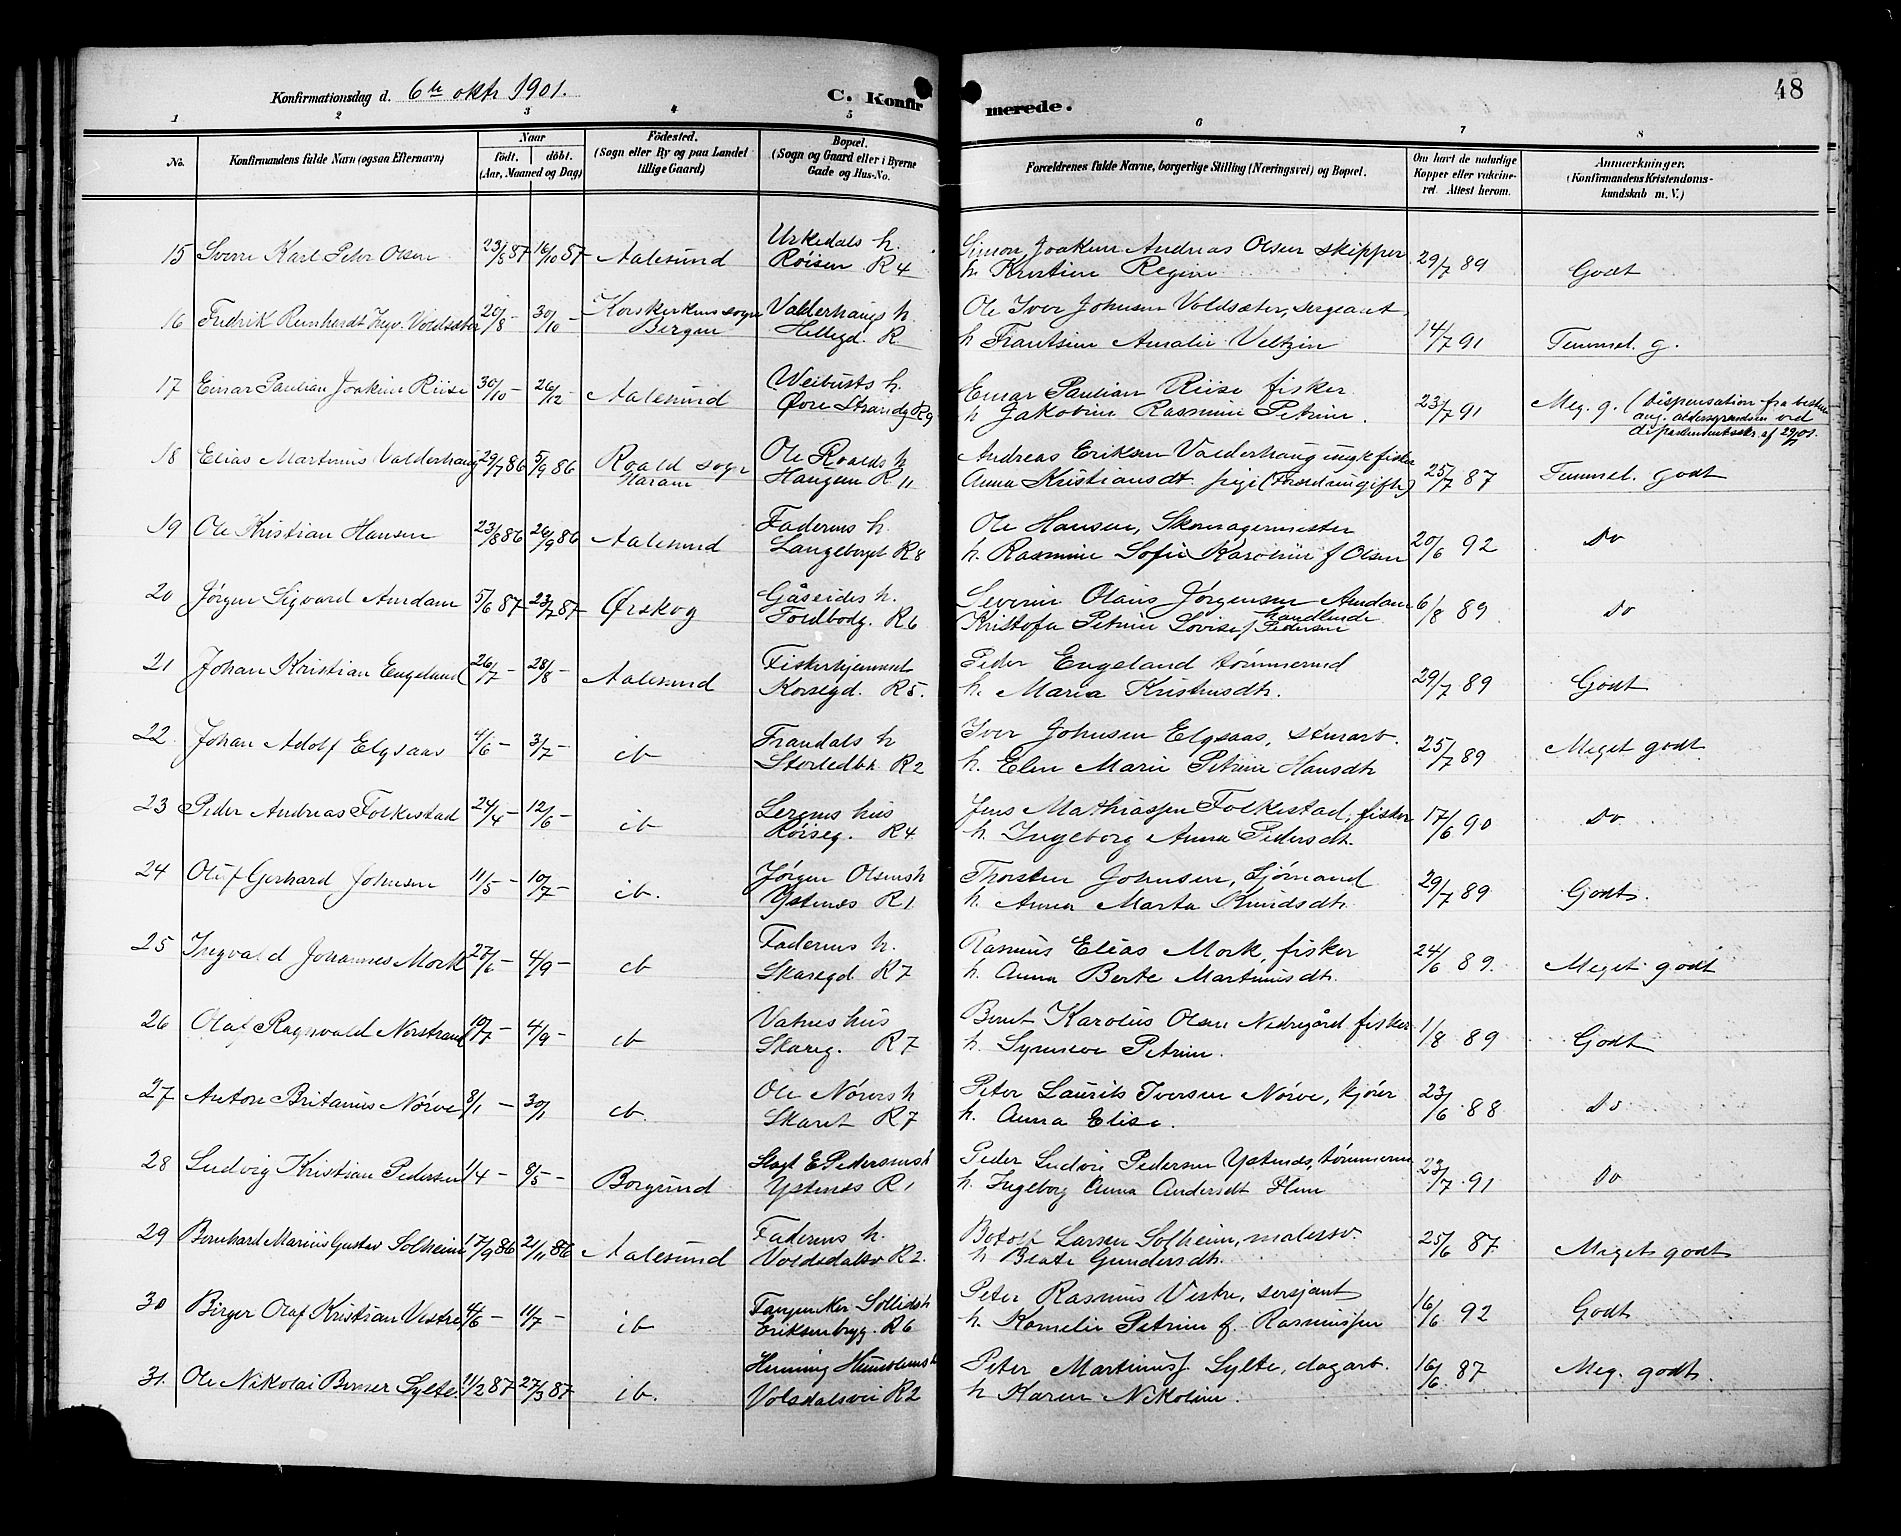 48
Konfirmationsdag d. 6te oktr 1901.
C. Konfirmerede.
1 2 3 4 5 6 7 8
No. Konfirmandens fulde Navn (ogsaa Efternavn) Naar født. døbt. (Aar, Maaned og Dag) Fødested. (Sogn eller By og paa Landet tillige Gaard) Bopæl. (Sogn og Gaard eller i Byerne Gade og Hus-No. Forældrenes fulde Navne, borgerlige Stilling (Næringsvei) og Bopæl. Om havt de naturlige Kopper eller vakcineret. Attest herom. Anmærkninger. (Konfirmandens Kristendomskundskab m. V.)
15 Sverre Karl Peter Olsen 23/8 87 16/10 87 Aalesund Urkedals h. Røisen R4 Simon Joakim Andreas Olsen skipper
h. Kristine Regine 29/7 89 Godt
16 Fredrik Reinhardt Ingv. Voldsæter 20/8 - 30/10 - Korskirkens sogn Bergen Valderhaugs h. Hellegd. R Ole Iver Johnsen Voldsæter, sergeant,
h Frantsine Amalie Veltzin 14/7 91 Temmel. g.
17 Einar Paulian Joakim Riise 30/10 - 26/12 - Aalesund Weibusts h. Øvre Strandg R9 Einar Paulian Riise fisker
h. Jakobine Rasmine Petrine. 23/7 91 Meg. g. (Dispensation fra bestem
ang. aldersgrændsen ved
departementsskr. af
18 Elias Martinus Valderhaug 29/7 86 5/9 86 Roald sogn Haram Ole Roalds h Haugen R 11 Andreas Eriksen Valderhaug ungk fisker
Anna Kristiansdt. pige (Foræld. ungifte) 25/7 87 Temmel. godt
19 Ole Kristian Hansen 23/8 86 26/9 86 Aalesund Faderens h. Langeberget R8 Ole Hansen, Skomagermester
h. Rasmine Sofie Karoline f Olsen 20/6 92 Do
20 Jørgen Sigvard Amdam 5/6 87 23/7 87 Ørskog Gåseides h. Fordbodg. R6 Severin Olaus Jørgensen Amdam handlende
Kristofa Petrine Lovise f Pedersen 6/8 89 Do
21 Johan Kristian Engeland 26/7 - 28/8 - Aalesund Fiskerhjemmet Korsegd. R5. Peder Engeland tømmermd
h. Maria Kristensdt. 29/7 89 Godt
22. Johan Adolf Elgsaas 4/6 - 3/7 - ib Frandals h R2 Iver Johnsen Elgsaas, stuarb.
h. Elen Marie Petrine Hansdt 25/7 89 Meget godt
23 Peder Andreas Folkestad 24/4 - 12/6 - ib Lerems hus Røiseg. R4 Jens Mathiassen Folkestad, fisker
h. Ingeborg Anna Pedersdt. 17/6 90 Do
24 Oluf Gerhard Johnsen 11/5 - 10/7 - ib. Jørgen Olsens h Ystenes R1 Thorsten Johnsen, Sjømand
h. Anna Marta Knudsdt. 29/7 89 Godt.
25 Ingvald Johannes Mork 27/6 - 4/9 - ib Faderens h. Skaregd R7 Rasmus Elias Mork, fisker
h. Anna Berte Martinusdt. 24/6 89. Meget godt
26 Olaf Ragnvald Norstrand 10/7 - 4/9 - ib Vatnes hus Skareg. R7 Bernt Karolus Olsen Nedregård fisker
h. Synneve Petrine. 1/8 89 Godt
27 Anton Britanus Nørve 8/1 - 30/1 ib. Ole Nørves h Skaret R7 Peter Laurits Iversen Nørve, kjører
h. Anna Elise. 23/6 88 Do
28 Ludvig Kristian Pedersen 1/4 - 8/5 - Borgund Slagt E Pedersens h Ystenes R1 Peder Ludvi Pedersen Ystenes, tømmerm
h. Ingeborg Anna Andersdt 23/7 91 Do
29 Bernhard Marius Gustav Solheim 17/9 86 21/11 86 Aalesund Faderens h. Voldsdalsv R2. Botolf Larsen Solheim, malersv.
h. Beate Gundersdt. 25/6 87 Meget godt
30 Birger Olaf Kristian Vestre 4/6 - 11/7 - ib Sollids h Eriksenbryg. R6 Peter Rasmus Vestre, sersjant
h. Kornelie Petrine f. Rasmussen 16/6 92 Godt
31. Ole Nikolai Berner Sylte 21/2 87 27/3 87 ib. Henning h Volsdalsvei R2 Peter Martinus J. Sylte, dagarb.
h Karen Nikoline. 16/6 87 Meg. godt.